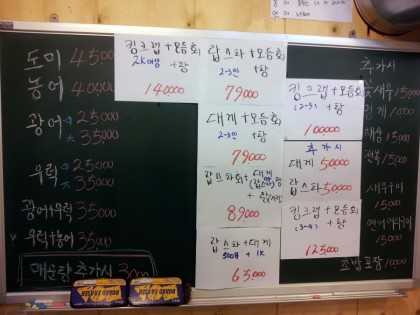 도미 45000
농어 40000
광어 小 25000
大 35000
우럭 小 25000
大 35000
광어+우럭 35000
우럭+놀래 35,000
매운탕 추가시 3000
킹크랩+모듬회
2K이상 +탕
140,000
랍스타+모듬회
2-3인 +탕
79000
대게+모듬회
2-3인 +탕
79,000
89000
랍스타+대게
500g + 1K
65,000
킹크랩+모듬회
(2~3) +탕
100000
추가시
대게 50000
랍스타 50000
킹크랩+모듬회
(3~4) +탕
125,000
추가시
새우 15000
멍게 10000
해삼 15000
전복 15000
새우구이
15000
연어머리구이
15000
초밥포장 10000
BOARD ERASER
BOARD ERASER